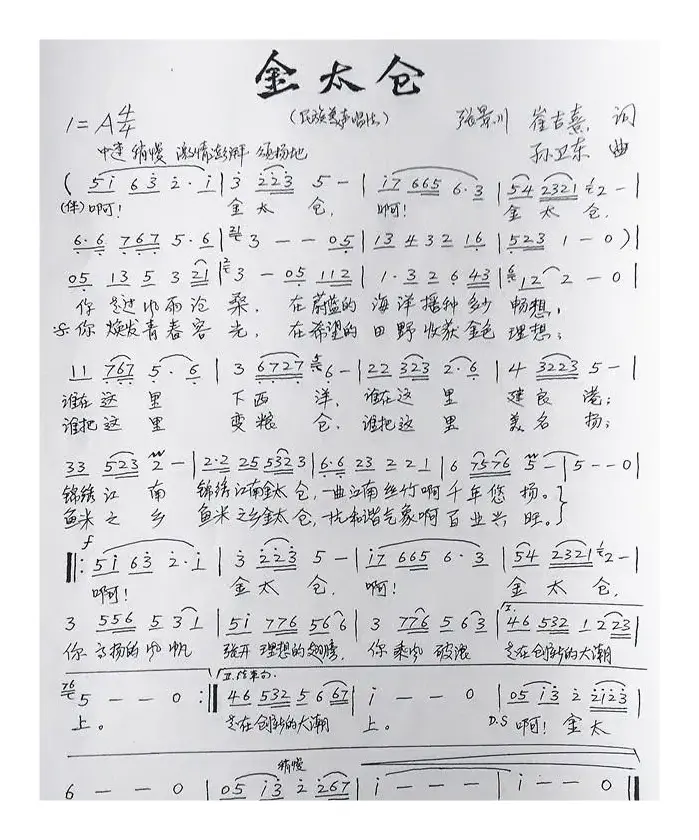 金太仓
(民族美声唱法)
1=A 4/4
张景川 崔吉熹 词
孙卫东 曲
中速 稍慢 激情澎湃 颂扬地
( 5i 63 2·i | 3 223 5 - | i7 665 6·3 | 54 2321 2 - |
(伴)啊! 金太仓, 啊! 金太仓,
6·6 767 5·6 | 3 - - 05 | 13 432 16 | 523 1 - 0 ) |
05 13 5 3 21 | 3 - 05 112 | 1·3 2 6 43 | 12 2 - 0 |
你 走过风雨沧桑, 在蔚蓝的 海洋播种多少 畅想,
你焕发青春容光, 在希望的 田野收获金色 理想;
11 767 5·6 | 3 6727 6 - | 22 323 2·6 | 4 3223 5 - |
谁在这里 下西洋, 谁在这里 建良港;
谁把这里 变粮仓, 谁把这里 美名扬;
33 523 2 - | 2·2 25 532 3 | 6·6 23 2 2 1 | 6 7576 5 - | 5 - - 0 |
锦绣江南 锦绣江南金太仓, 一曲江南丝竹啊千年悠扬。
鱼米之乡 鱼米之乡金太仓, 一片和谐气象啊百业兴旺。
f
5i 63 2·1 | 3 223 5 - | i7 665 6·3 | 54 2321 2 - |
啊! 金太仓, 啊! 金太仓,
3 556 5 3 1 | 5i 776 56 6 | 3 776 5 6 3 | I. 46 532 1 2 23 |
你高扬的风帆 张开理想的翅膀, 你乘风破浪 走在创新的大潮
5 - - 0 :‖ II.结束句. 46 532 5 6 67 | i - - 0 | 05 i3 2 2123 |
上。 走在创新的大潮 上。 D.S 啊! 金太
稍慢
6 - - 0 | 05 i3 2 267 | i - - - | i - - 0 ‖